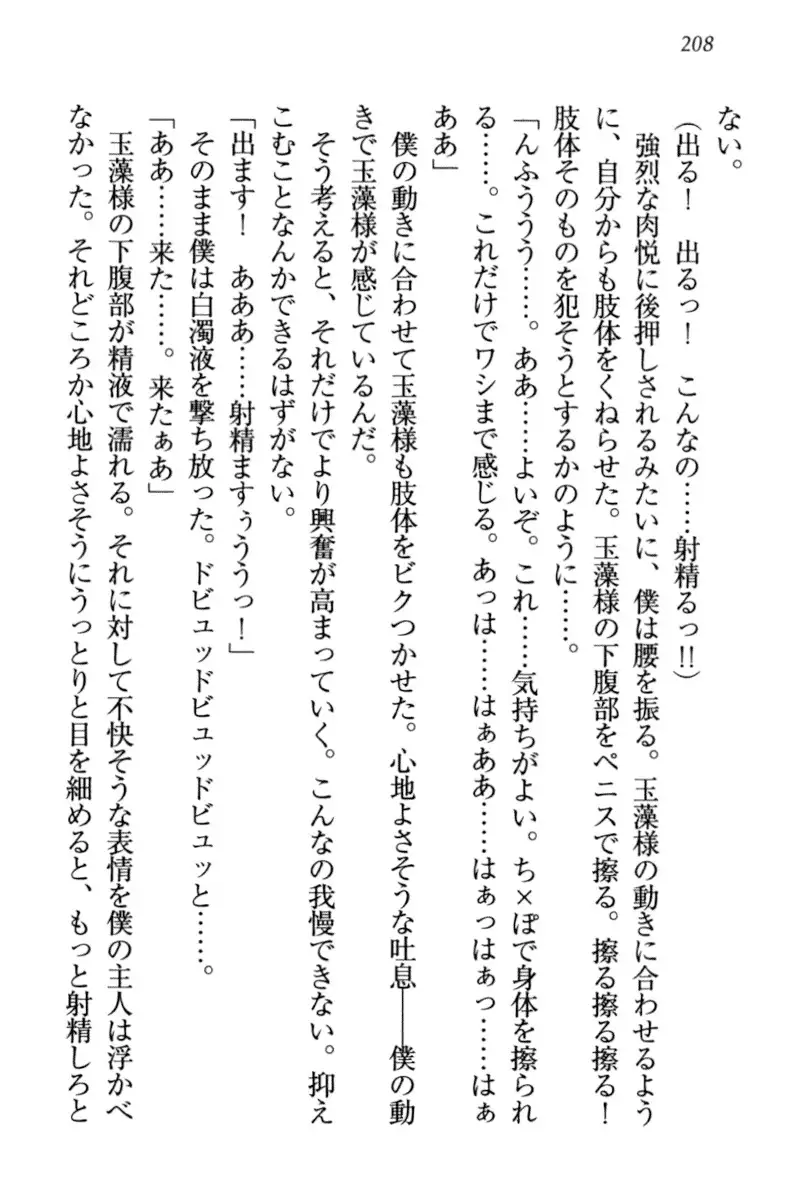 208
ない。
（出る！　出るっ！　こんなの……射精るっ!!）
　強烈な肉悦に後押しされるみたいに、僕は腰を振る。玉藻様の動きに合わせるよう
に、自分からも肢体をくねらせた。玉藻様の下腹部をペニスで擦る。擦る擦る擦る！
肢体そのものを犯そうとするかのように……。
「んふううう……。ああ……よいぞ。これ……気持ちがよい。ち×ぽで身体を擦られ
る……。これだけでワシまで感じる。あっは……はぁああ……はぁっはぁっ……はぁ
ああ」
　僕の動きに合わせて玉藻様も肢体をビクつかせた。心地よさそうな吐息――僕の動
きで玉藻様が感じているんだ。
　そう考えると、それだけでより興奮が高まっていく。こんなの我慢できない。抑え
こむことなんかできるはずがない。
「出ます！　あああ……射精ますぅううっ！」
　そのまま僕は白濁液を撃ち放った。ドビュッドビュッドビュッと……。
「ああ……来た……。来たぁあ」
　玉藻様の下腹部が精液で濡れる。それに対して不快そうな表情を僕の主人は浮かべ
なかった。それどころか心地よさそうにうっとりと目を細めると、もっと射精しろと